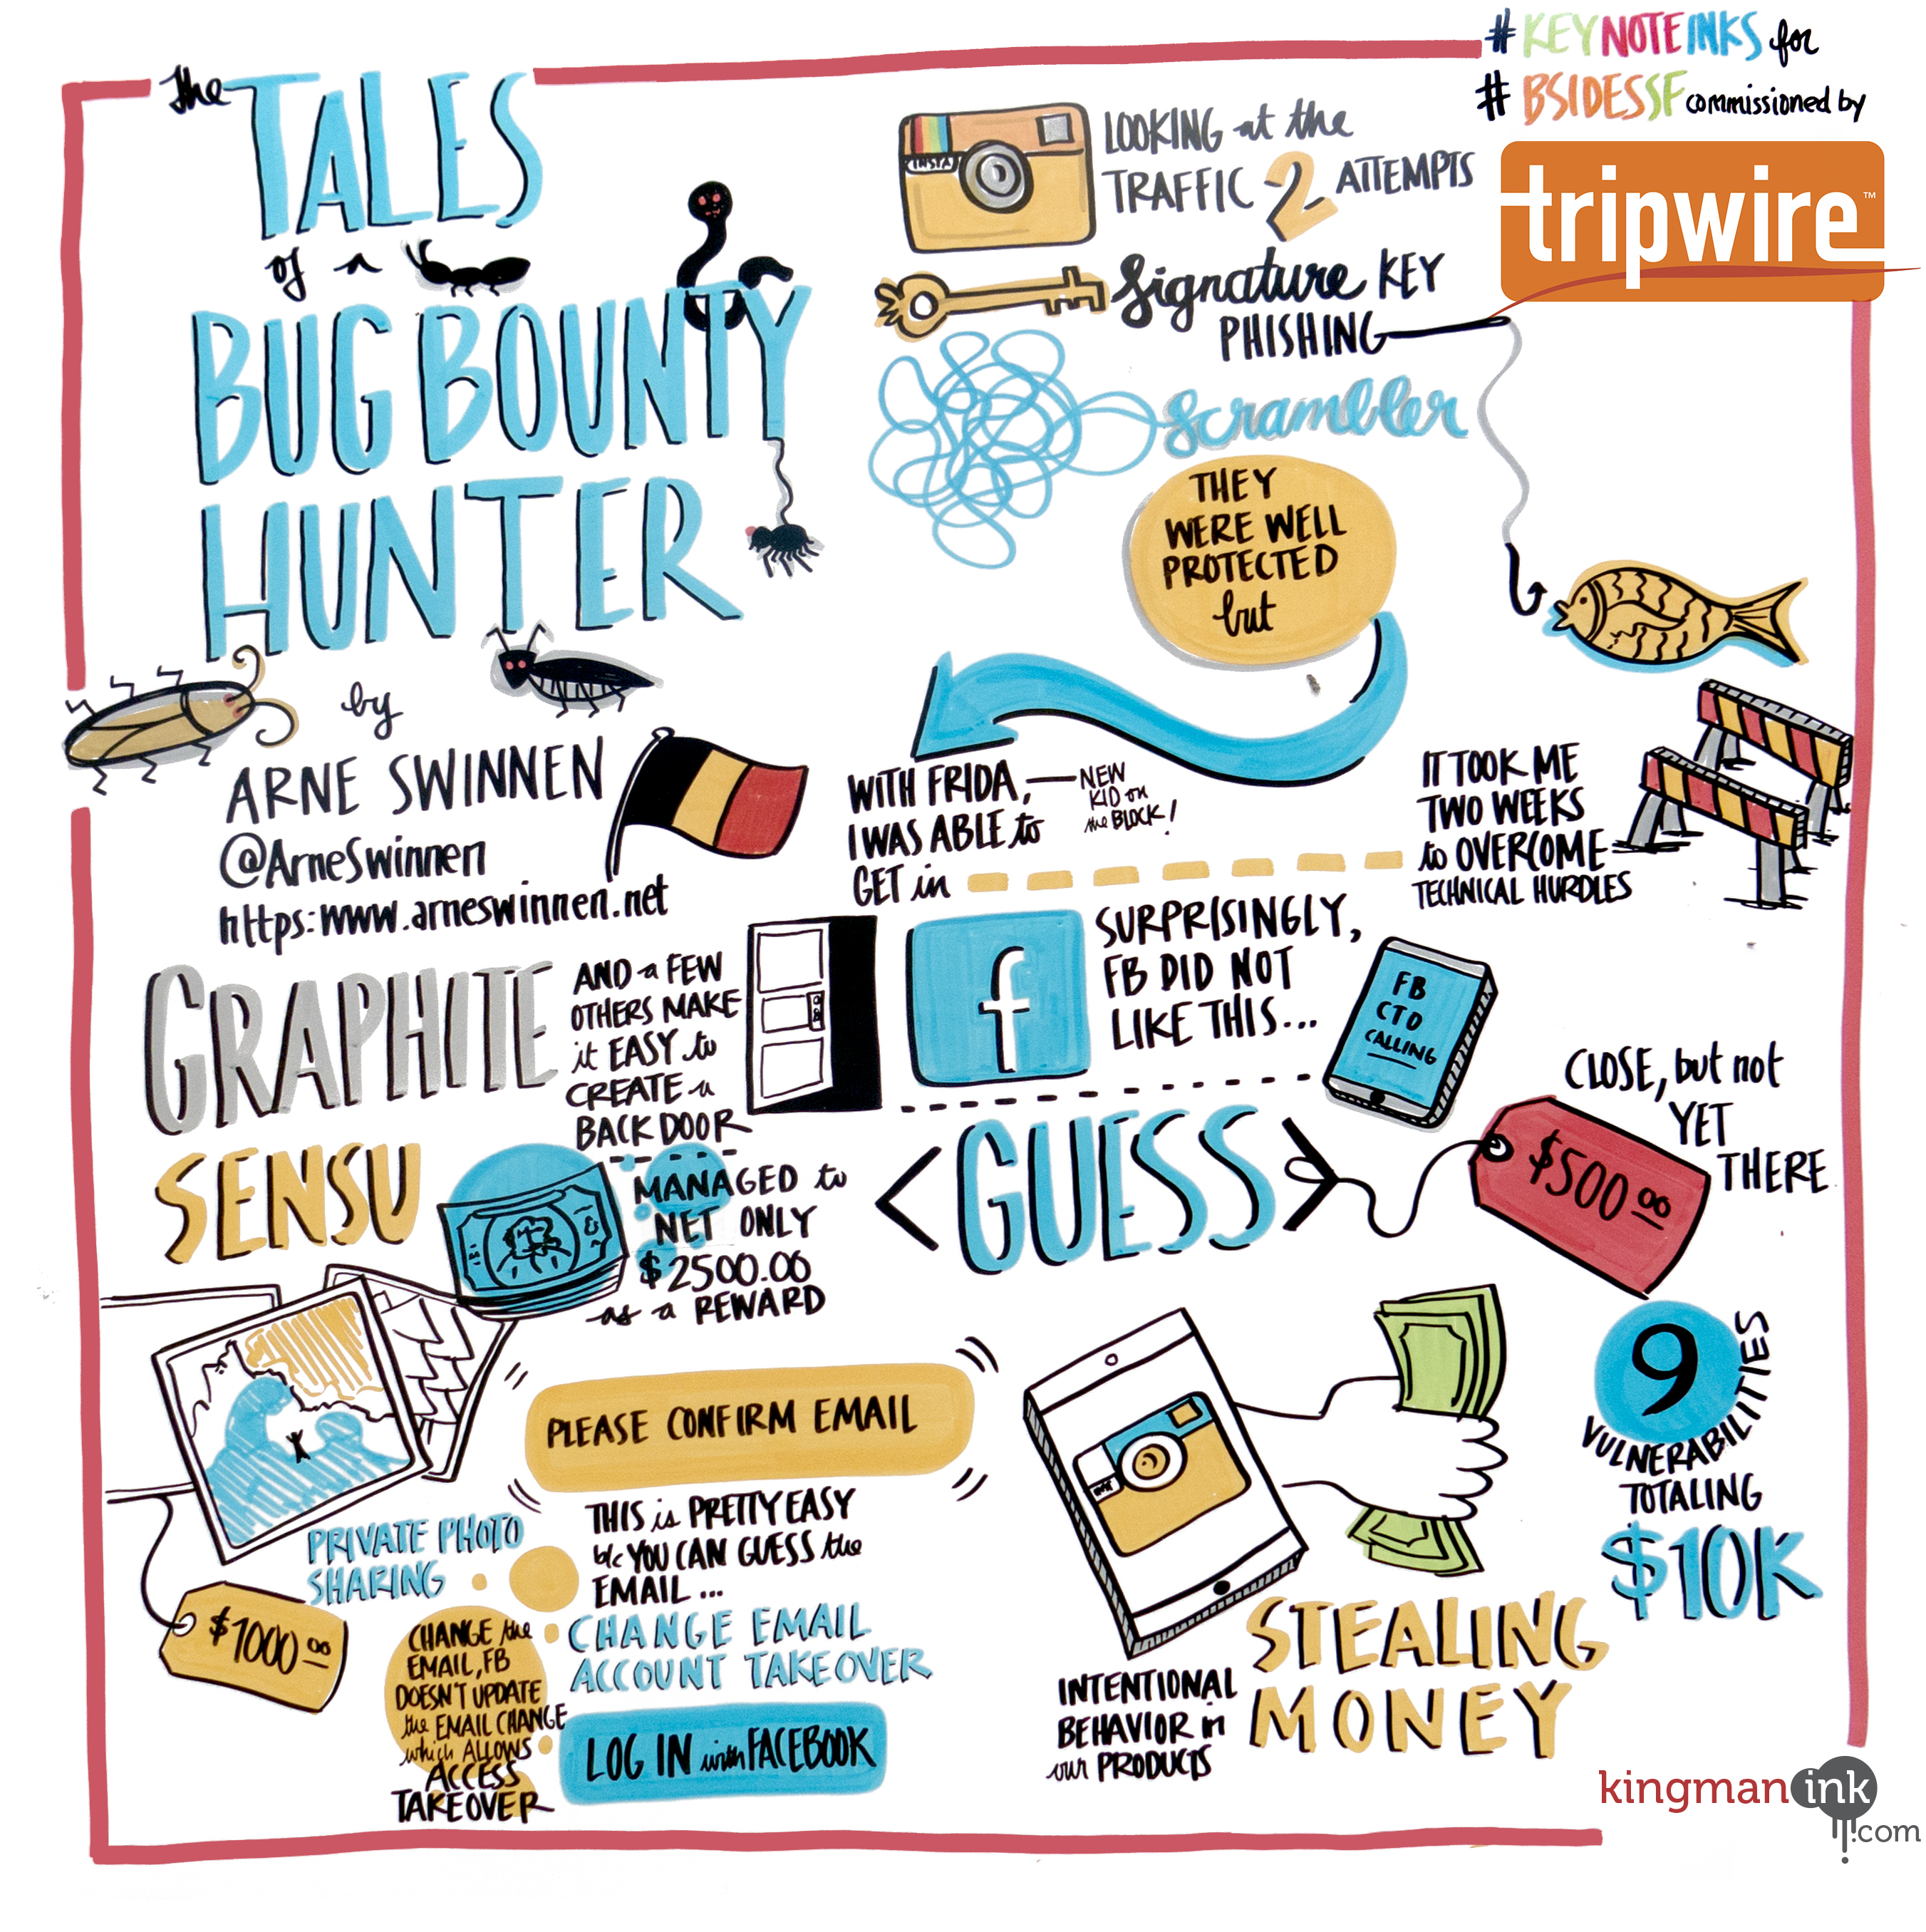 #KEYNOTEINKS for
#BSIDESSF commissioned by
tripwire™
The
TALES
of a
BUG BOUNTY
HUNTER
by
ARNE SWINNEN
@ArneSwinnen
https:www.arneswinnen.net
INSTA
LOOKING at the
TRAFFIC 2 ATTEMPTS
Signature KEY
PHISHING
Scrambler
THEY
WERE WELL
PROTECTED
but
WITH FRIDA, — NEW
KID on
the BLOCK!
I WAS ABLE to
GET in
IT TOOK ME
TWO WEEKS
to OVERCOME
TECHNICAL HURDLES
GRAPHITE
SENSU
AND a FEW
OTHERS MAKE
it EASY to
CREATE a
BACK DOOR
f
SURPRISINGLY,
FB DID NOT
LIKE THIS...
FB
CTO
CALLING
MANAGED to
NET ONLY
$2500.00
as a REWARD
<GUESS>
$500.00
CLOSE, but not
YET
THERE
PRIVATE PHOTO
SHARING
$1000.00
PLEASE CONFIRM EMAIL
THIS is PRETTY EASY
b/c YOU CAN GUESS the
EMAIL...
CHANGE EMAIL
ACCOUNT TAKEOVER
CHANGE the
EMAIL, FB
DOESN'T UPDATE
the EMAIL CHANGE
which ALLOWS
ACCESS
TAKEOVER
LOG IN with FACEBOOK
INTENTIONAL
BEHAVIOR in
our PRODUCTS
STEALING
MONEY
9
VULNERABILITIES
TOTALING
$10K
kingmanink
.com